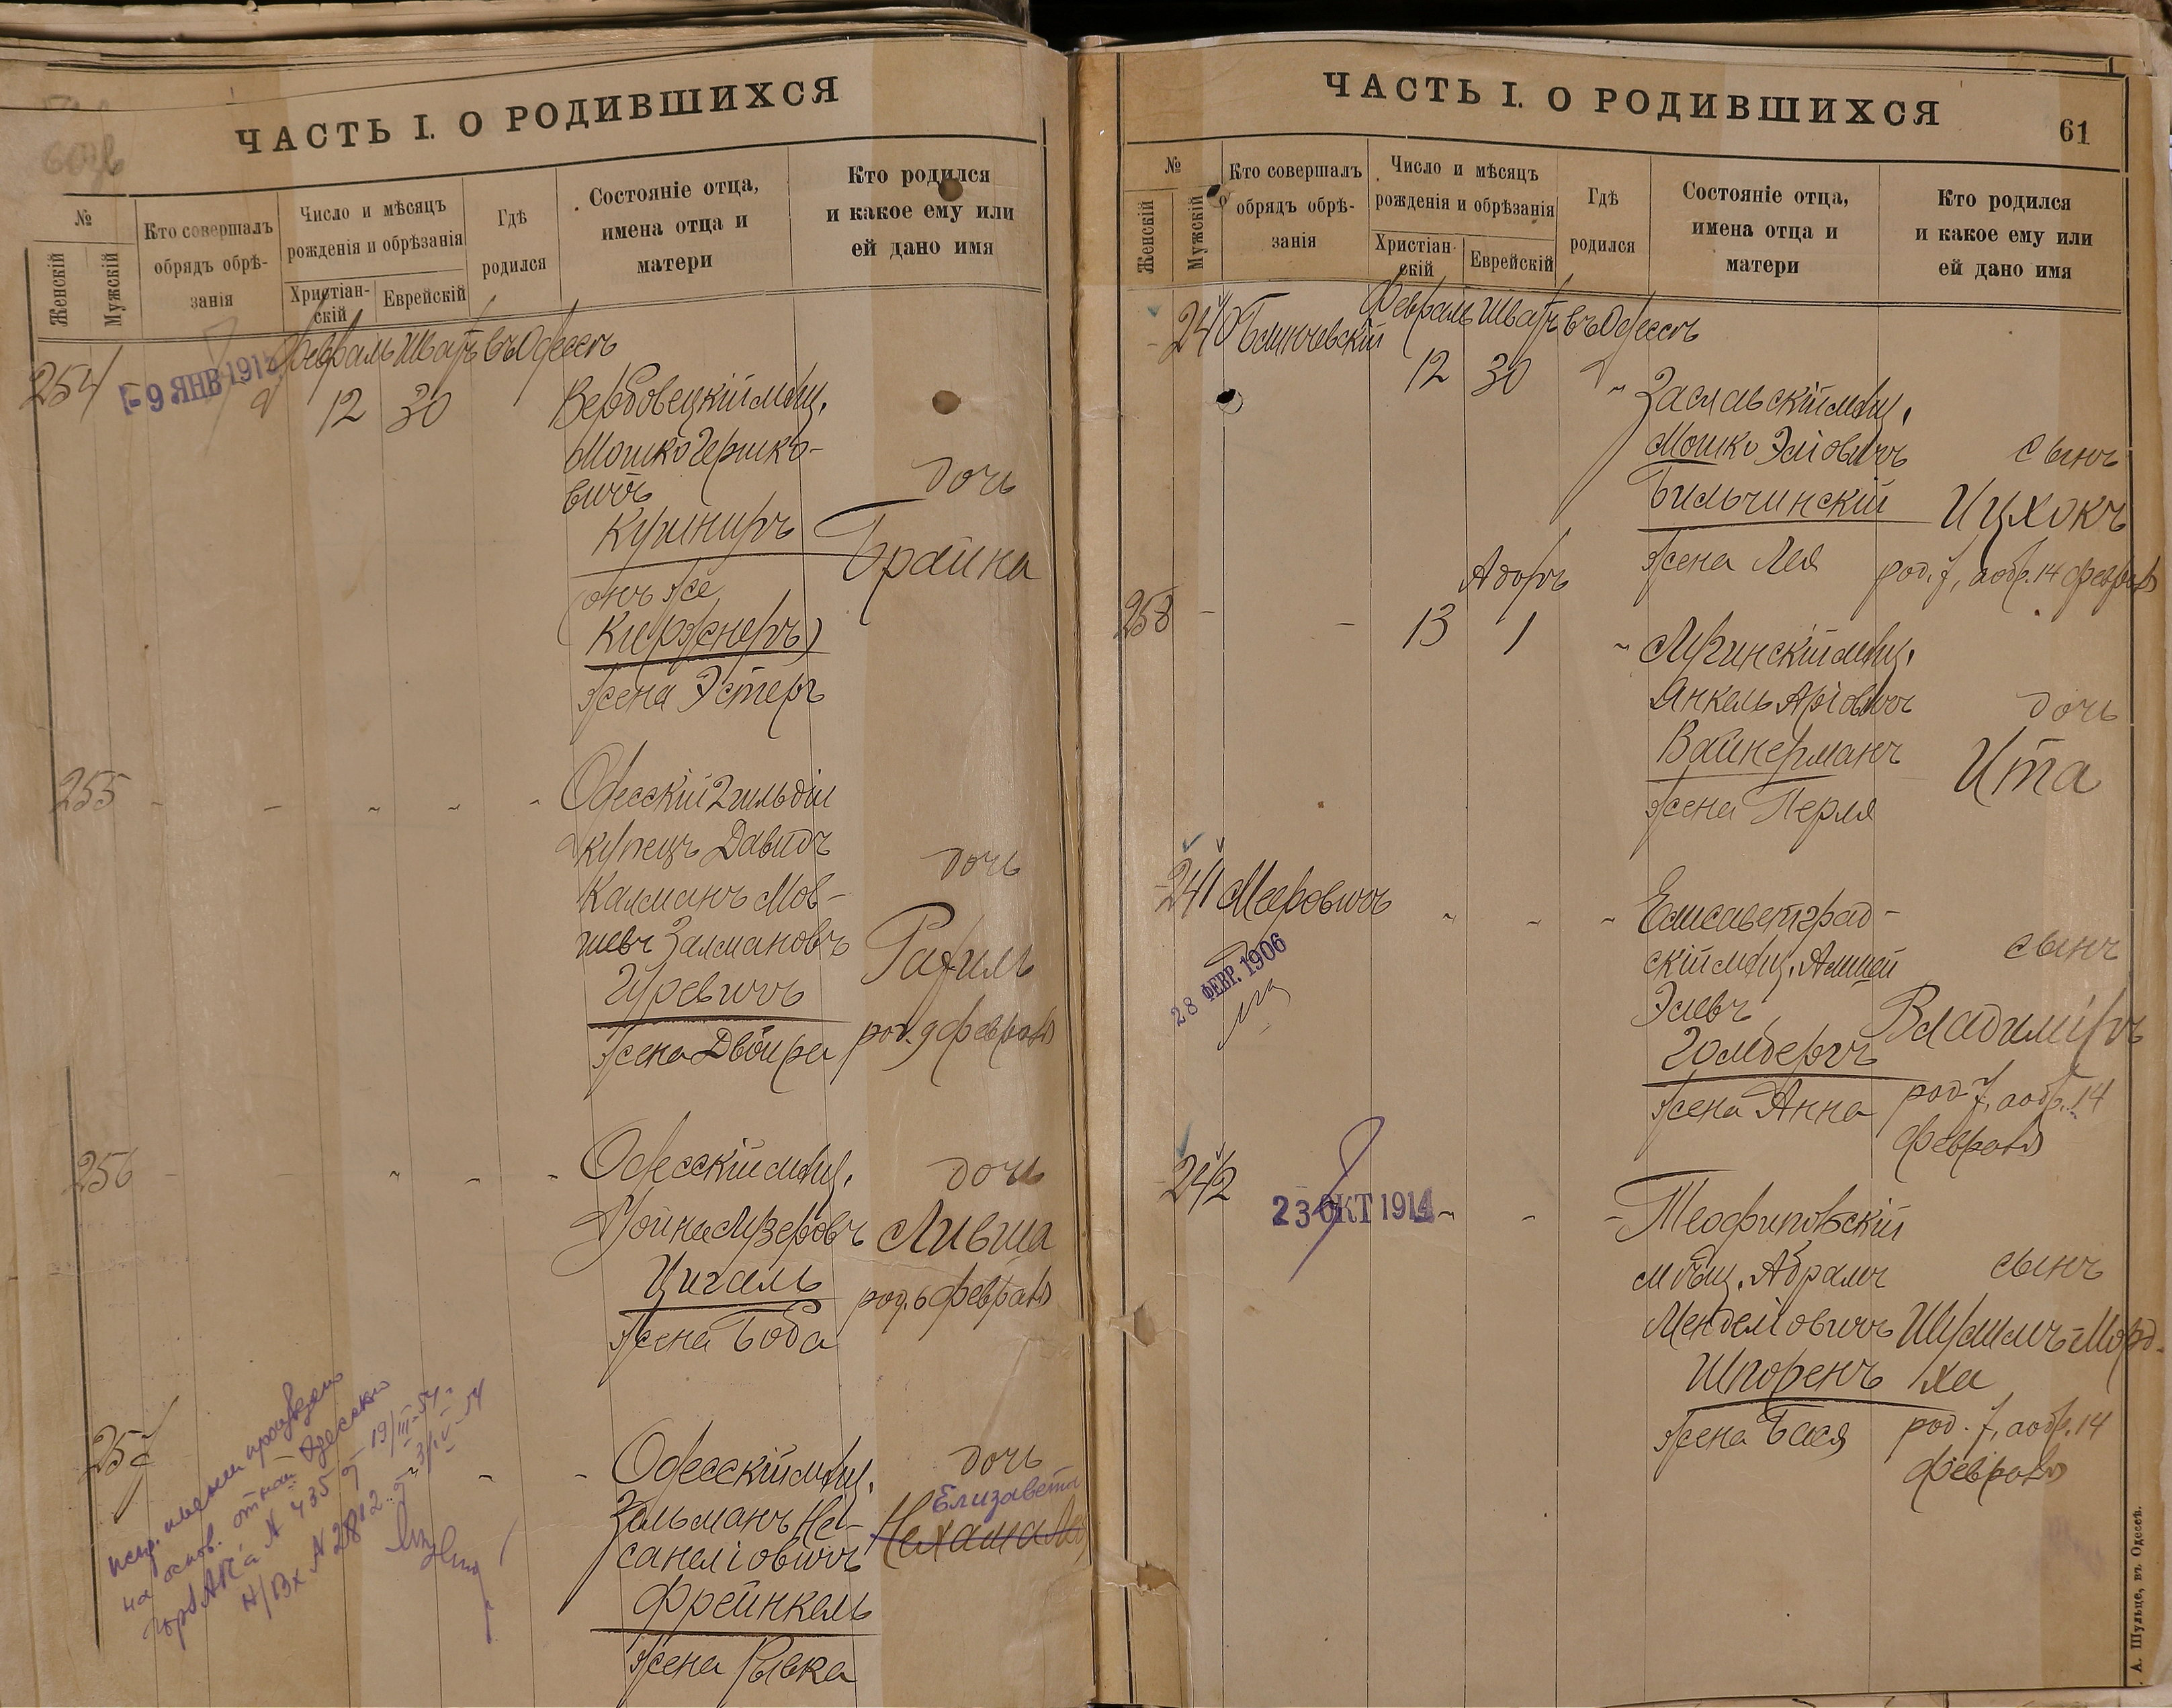 ЧАСТЬ I. О РОДИВШИХСЯ
№
Женскій
Мужскій
Кто совершалъ
обрядъ обрѣ-
занія
Число и мѣсяцъ
рожденія и обрѣзанія
Христіан-
скій
Еврейскій
Гдѣ
родился
Состояніе отца,
имена отца и
матери
Кто родился
и какое ему или
ей дано имя
Февраль Шватъ въ Одессѣ
254
- 9 ЯНВ 191
12 30
Вербовецкій мѣщ.
Мошко Гершко-
вичъ
Кушниръ
(онъ же
Киржнеръ)
жена Эстеръ
дочь
Брайна
255 - - " - -
Одесскій 2 гильдіи
купецъ Давидъ
Калманъ Мов-
шевъ Залмановъ
Гуревичъ
жена Двойра
дочь
Рахиль
род. 9 февраля
256 - - " - -
Одесскій мѣщ.
Лузеровъ
Цигаль
жена Боба
дочь
Ливша
род. 6 февраля
257 - -
испр. имени проведено
на основ. отнош Одесского
АГС'а N 435 от 19/III-54
Н/Вх N 2812 от 3/IV-54
Одесскій мѣщ.
Зельманъ Не-
санеліовичъ
Фрейнкель
жена Рывка
дочь
Елизавета
Нехама
ЧАСТЬ I. О РОДИВШИХСЯ
61
№
Женскій
Мужскій
Кто совершалъ
обрядъ обрѣ-
занія
Число и мѣсяцъ
рожденія и обрѣзанія
Христіан-
скій
Еврейскій
Гдѣ
родился
Состояніе отца,
имена отца и
матери
Кто родился
и какое ему или
ей дано имя
Февраль Шватъ въ Одессѣ
- 240
12 30 "
Заславскій мѣщ.
Мошко Эліовичъ
Бильчинскій
жена Лея
сынъ
Ицхокъ
род. 7, а обр. 14 февраля
Адоръ
258 - - 13 1 "
Лугинскій мѣщ.
Янкель Аріовичъ
Вайнерманъ
жена Перля
дочь
Ита
- 241 Мееровичъ " - "
28 ФЕВР. 1906
Елисаветград-
скій мѣщ.
Эліевъ
Голдбергъ
жена Анна
сынъ
Владиміръ
род. 7, а обр. 14
февраля
- 242
23 ОКТ 1914 " - -
Теофиповскій
мѣщ. Абрамъ
Менделіовичъ
Шпоренъ
жена Бася
сынъ
Шулимъ Морд-
ха
род. 7, а обр. 14
февраля
А. Шульце, въ Одессѣ.